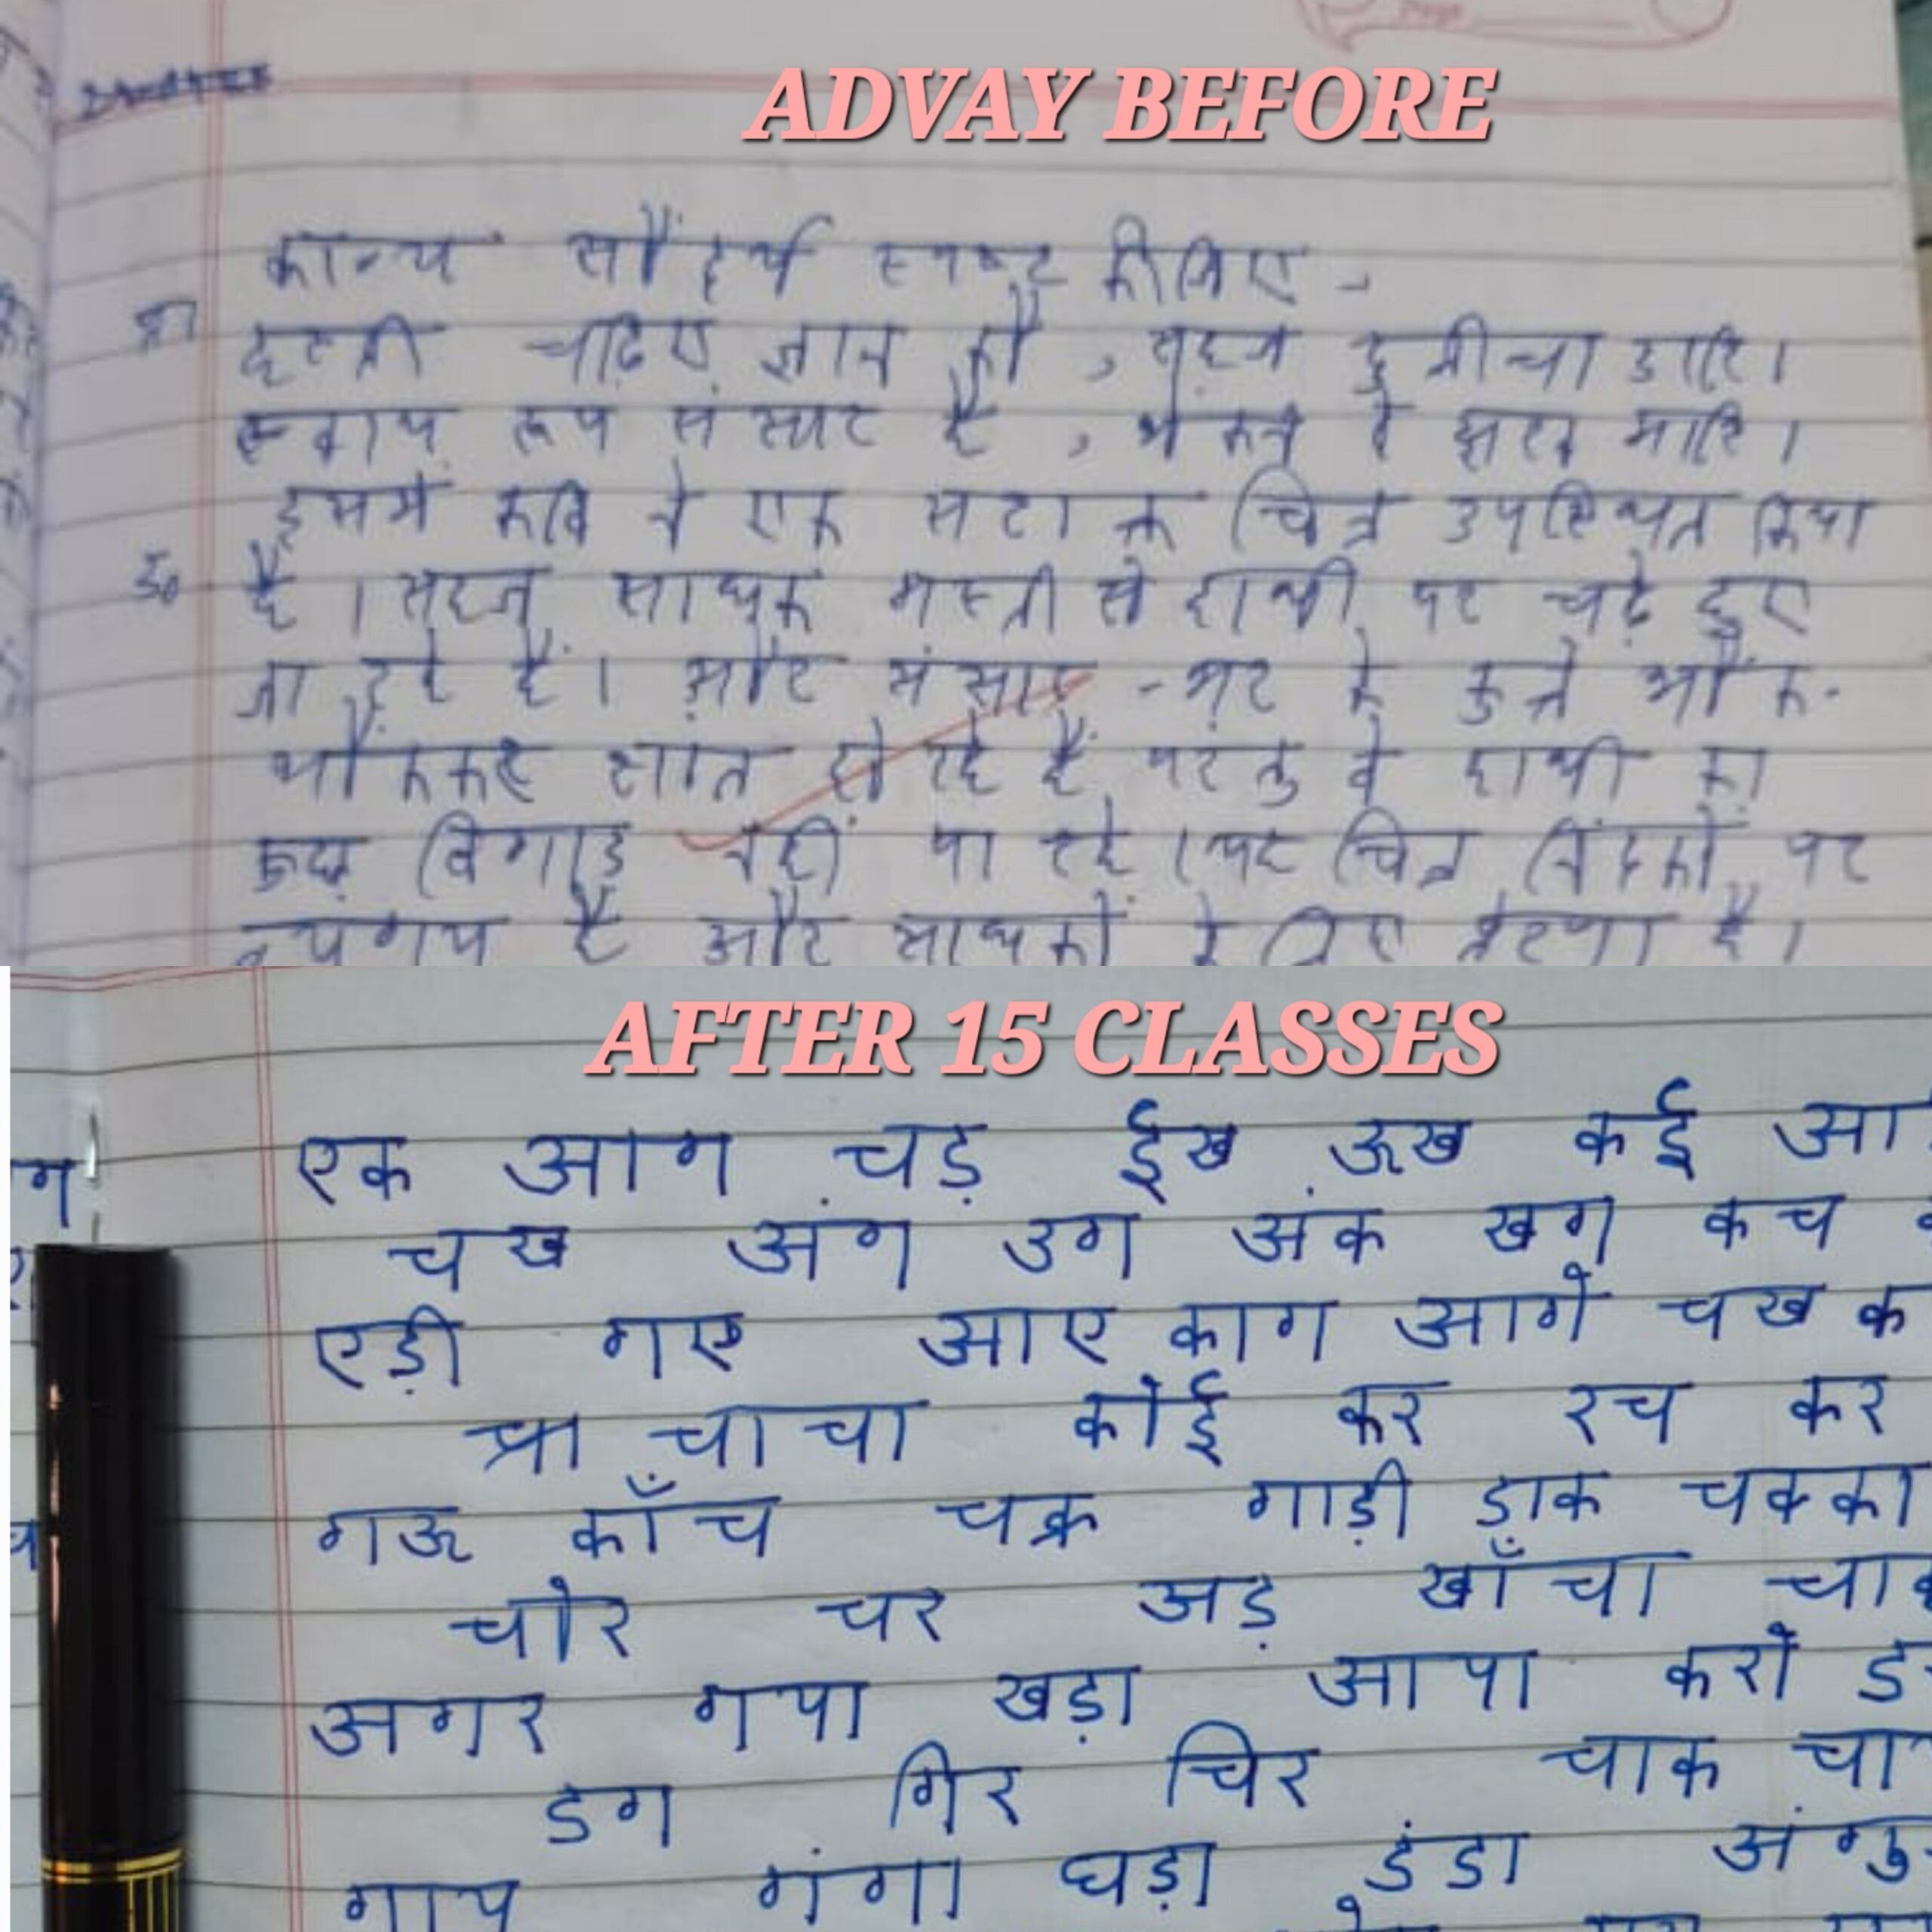 ADVAY BEFORE
काव्य सौंदर्य स्पष्ट कीजिए -
हस्ती चढ़िए ज्ञान कौ, सहज दुलीचा डारि।
स्वान रूप संसार है, भूंकन दे झख मारि।
इसमें कवि ने एक सटीक चित्र उपस्थित किया
उ० है। सहज साधक मस्ती से हाथी पर चढ़े हुए
जा रहे हैं। और संसार - भर के कुत्ते भौंक-
भौंककर शांत हो रहे हैं परंतु वे हाथी का
कुछ बिगाड़ नहीं पा रहे। यह चित्र निंदकों पर
व्यंग्य है और साधकों के लिए प्रेरणा है।
AFTER 15 CLASSES
एक आग चड़ ईख ऊख कई
चख अंग उग अंक खग कच
एड़ी गए आए काग आगे चख
चाचा कोई कर रच कर
गऊ काँच चक्र गाड़ी ड़ाक चक्का
चोर चर अड़ खाँचा
अगर गया खड़ा आया करो
डग गिर चिर चाक
गाय गंगा घड़ा डंडा